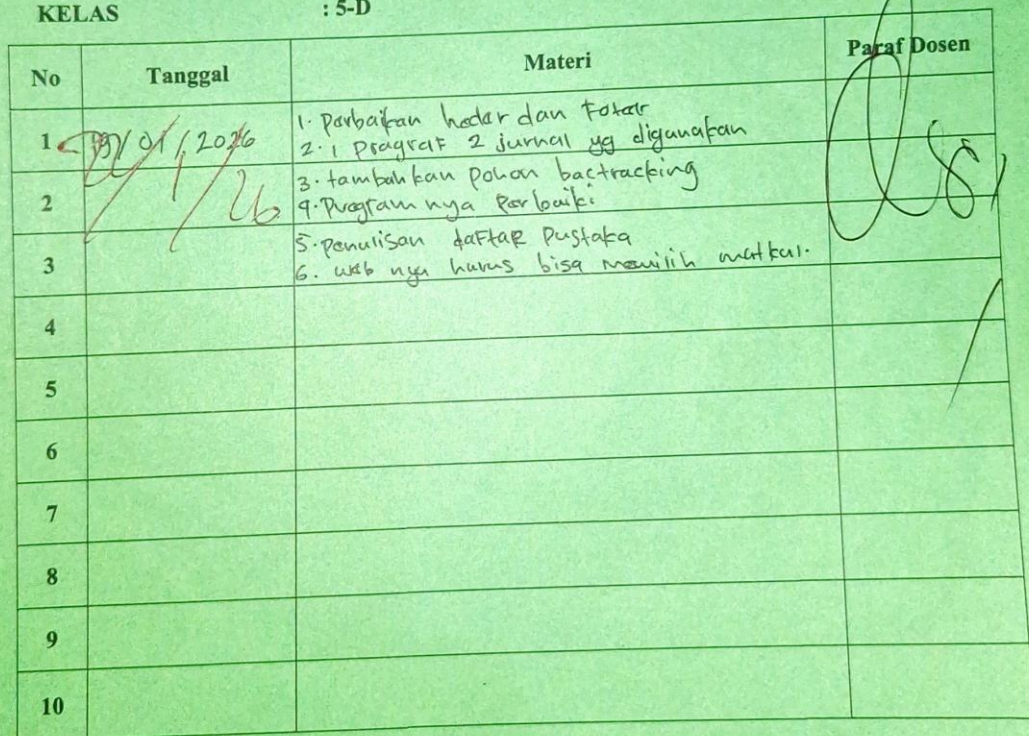 KELAS : 5-D
No Tanggal Materi Paraf Dosen
1 09/01/2026 1. Perbaikan hedar dan Fotar
2. 1 pragraf 2 jurnal yg digunakan
2 3. tambahkan pohon bactracking
4. Programnya Perbaiki
3 5. penulisan daftar Pustaka
6. web nya harus bisa memilih matkul.
4
5
6
7
8
9
10